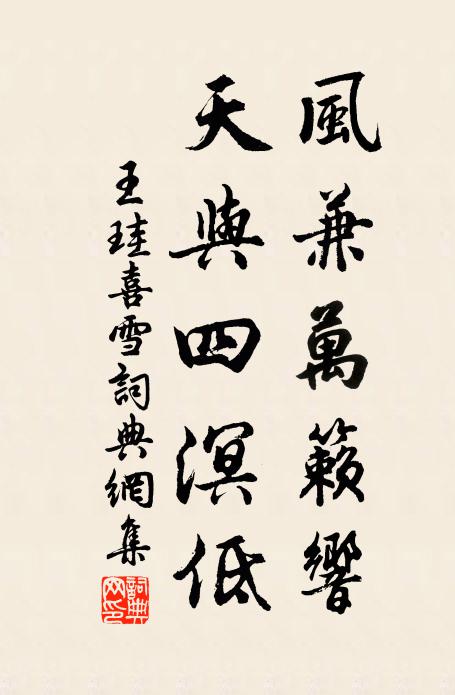 風兼萬籟響
天與四溟低
王珪喜雪詞典網集
詞典网印